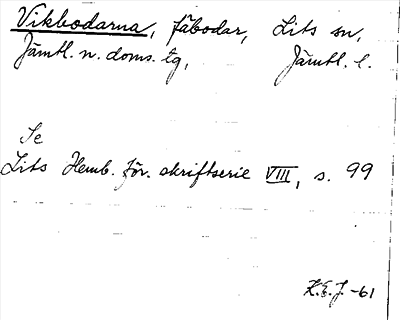 Vikbodarna, fäbodar, Lits sn,
Jämtl. n. doms. tg, Jämtl. l.
Se
Lits Hemb. för. skriftserie VIII, s. 99
K.E.J. -61